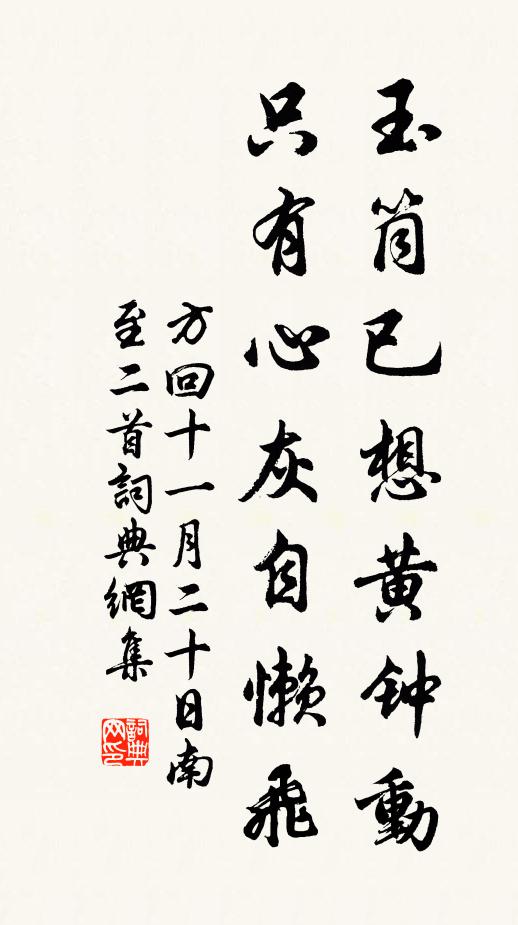 玉筒已想黄钟動
只有心灰自懶飛
方回十一月二十日南
至二首詞典網集
詞典
网印